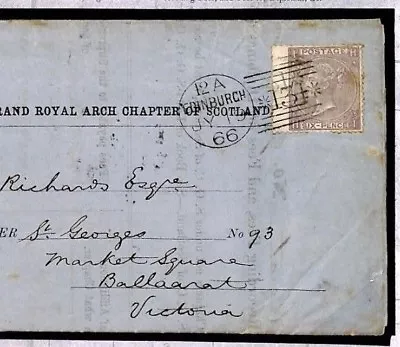 12 A
EDINBURGH
66
131
POSTAGE
SIX-PENCE
RAND ROYAL ARCH CHAPTER OF SCOTLAND
Richards Esqre
ER St. Georges No 93
Market Square
Ballaarat
Victoria